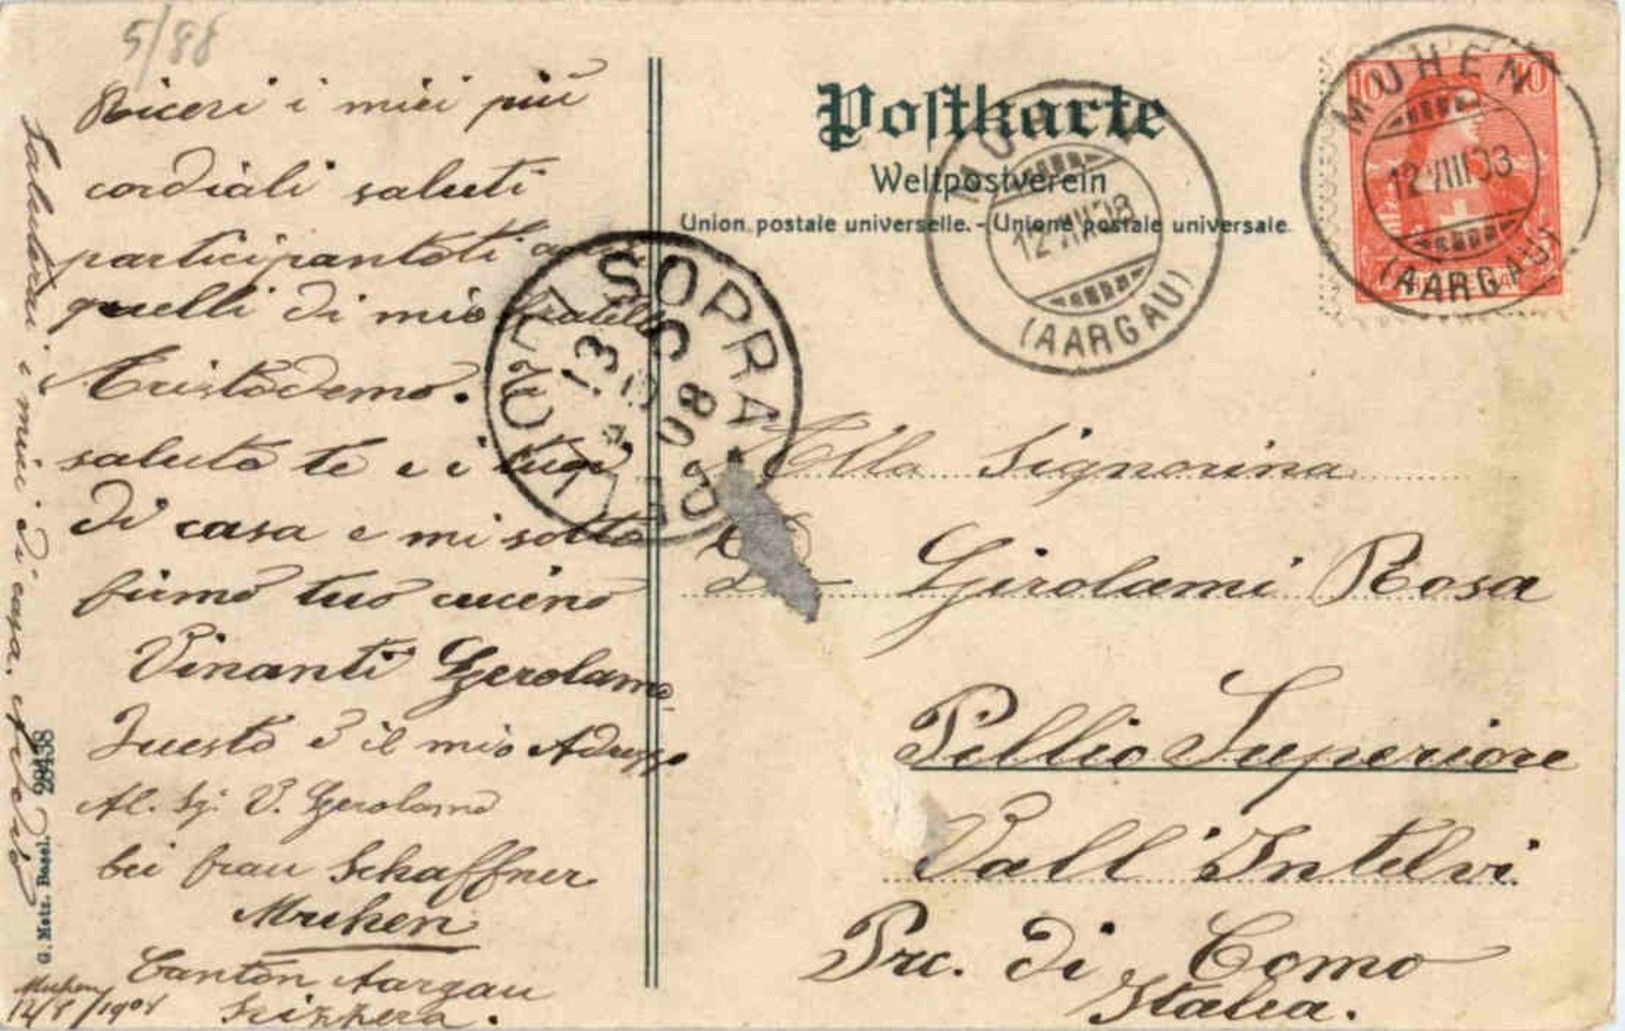 5/88
Riceri i miei più
cordiali saluti
participantoti
quelli di mio fratello
Aristodemo.
saluta te e i tuoi
di casa e mi sotto
firmo tuo cucino
Vinanti Gerolamo
Questo è il mio
Al. Sg. V. Gerolamo
bei frau Schaffner
Muhen
Canton Aargau
Svizzera.
Muhen
12/8/1908
Saluteri i miei di casa.
G. Metz. Basel. 28438
Postkarte
Weltpostverein
Union postale universelle. - Unione postale universale
MUHEN
12.VIII.08
(AARGAU)
MUHEN
12.VIII.08
(AARGAU)
10 10
SOPRA
13
8
08
Alla Signorina
Girolami Rosa
Pellio Superiore
Vall Intelvi
Prc. di Como
Italia.